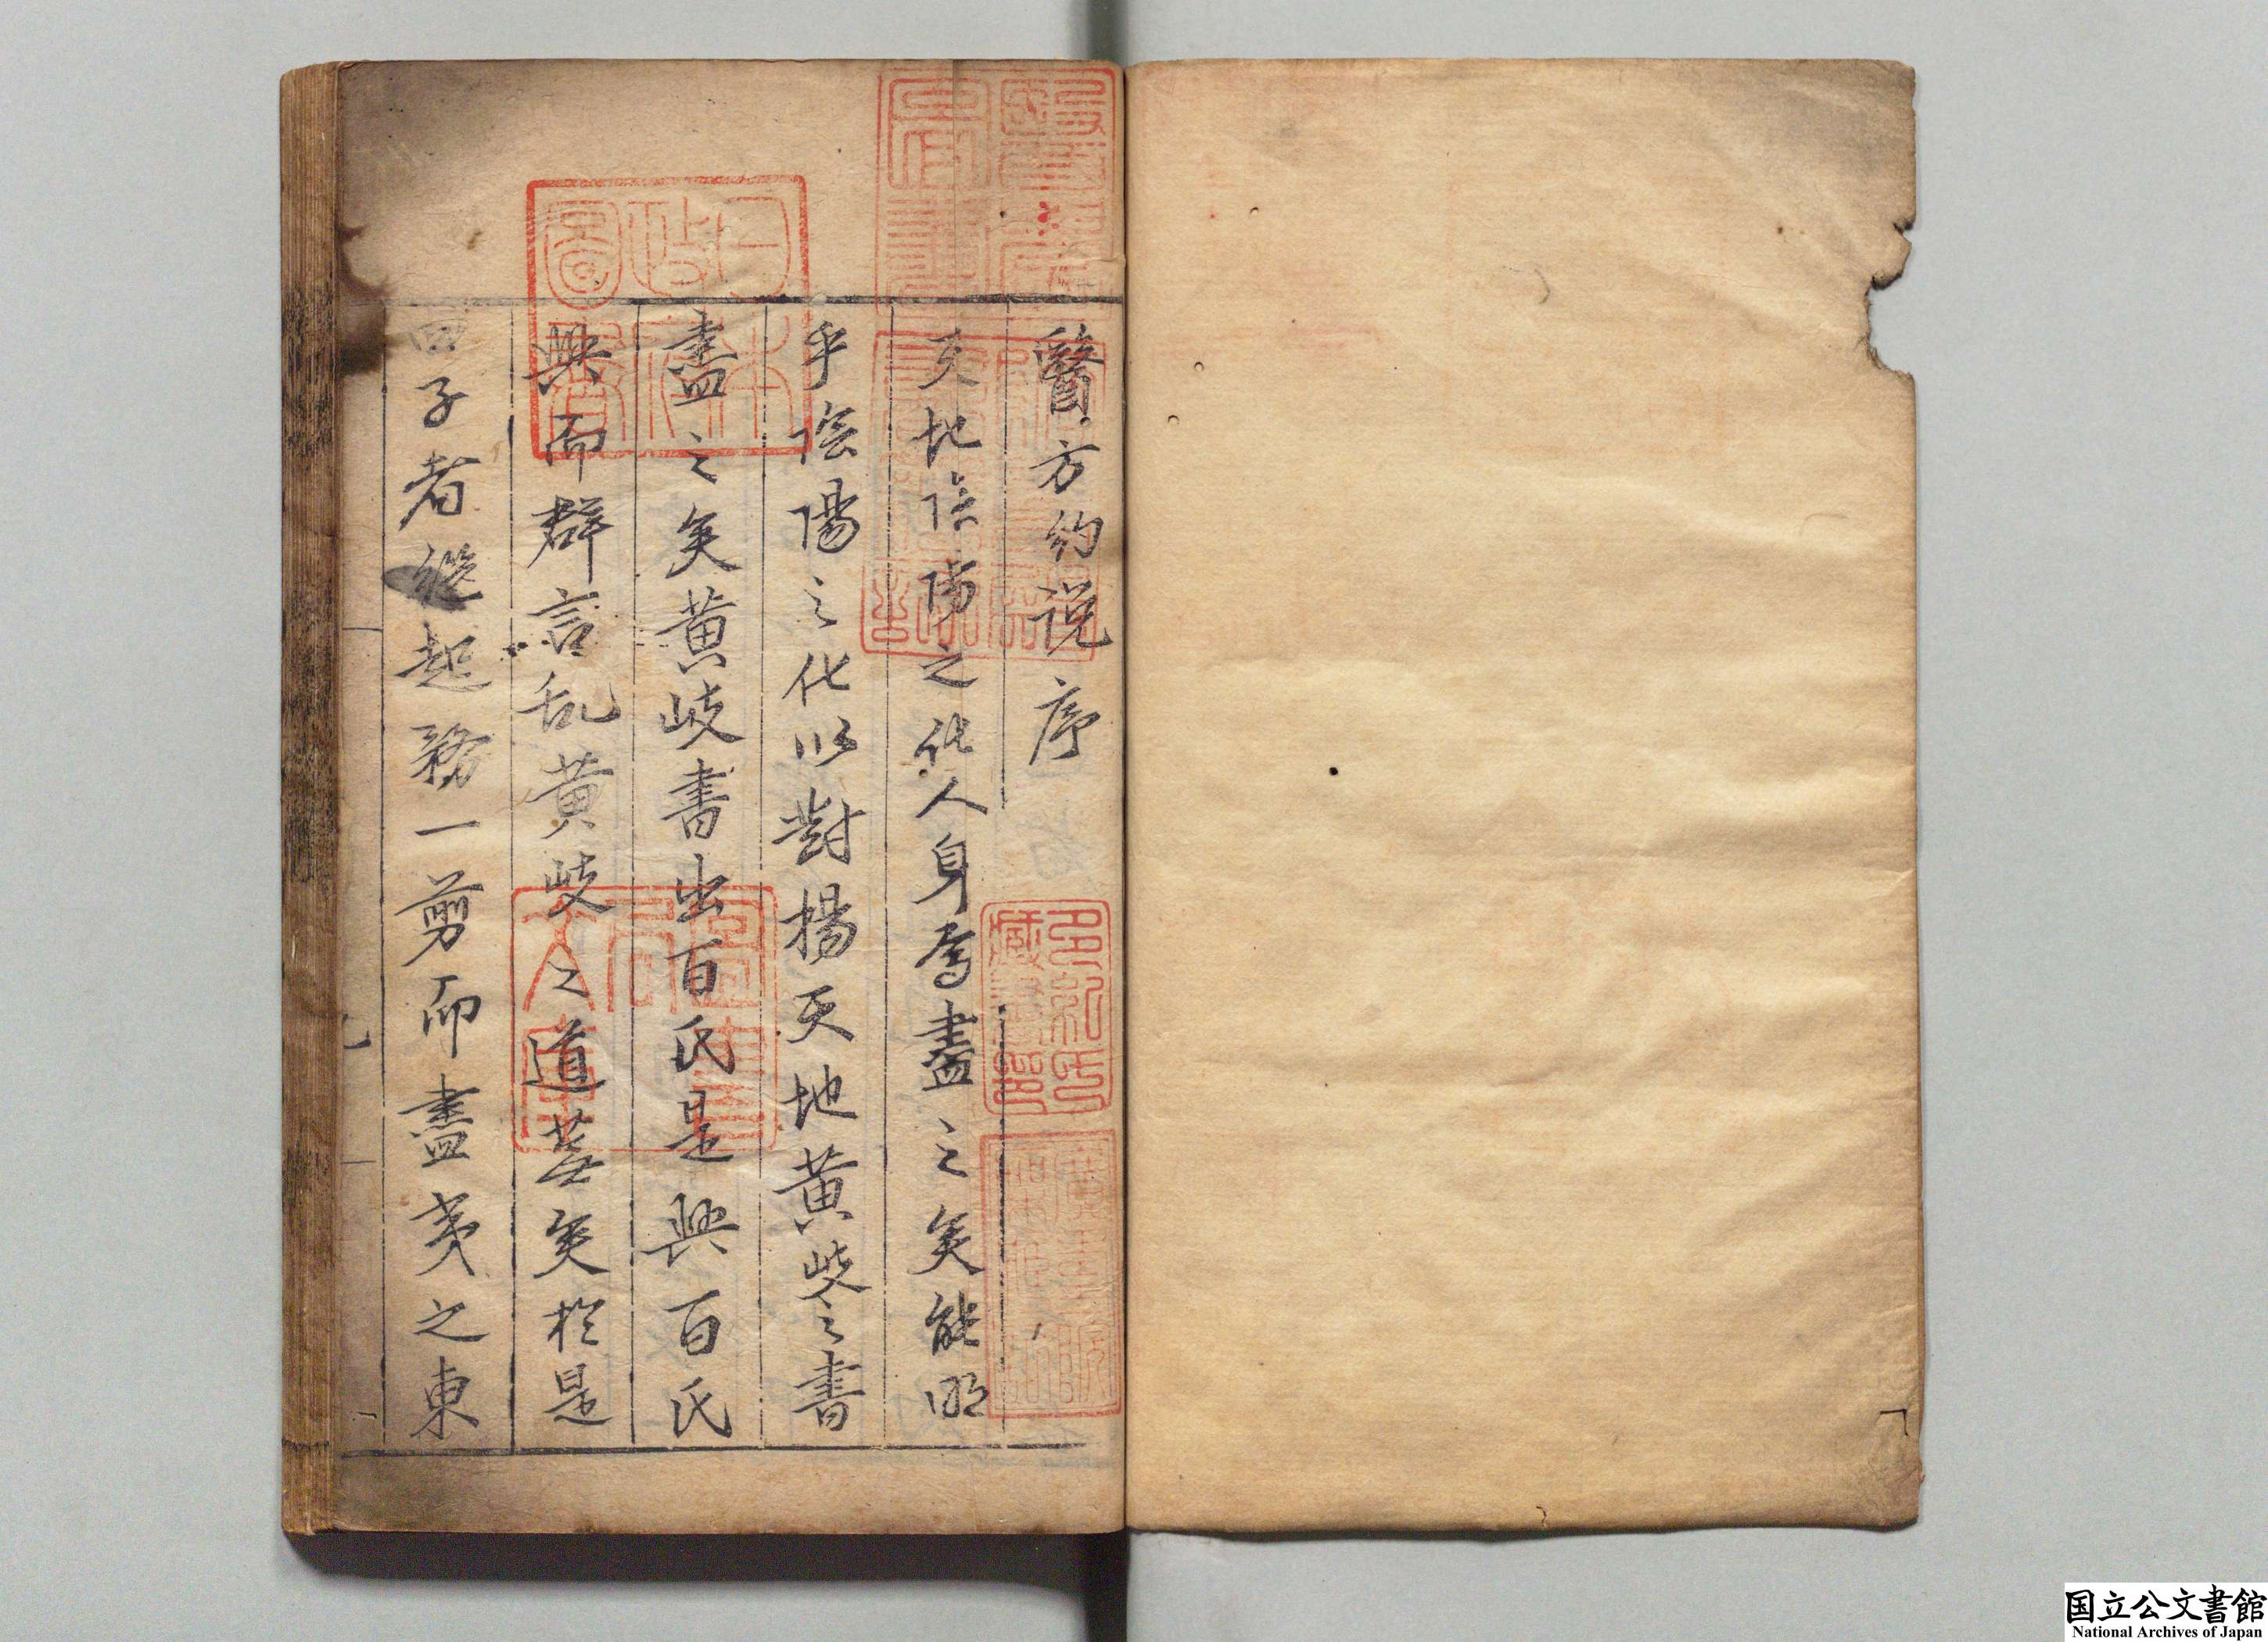 醫方約說序
天地陰陽之化人身焉盡之矣能明
乎陰陽之化以對揚天地黃岐之書
盡之矣黃岐書出百氏是興百氏
興而群言乱黃岐之道蕪矣於是
四子者從起務一剪而盡夷之東
多紀氏藏書印
日本政府圖書
國立公文書館
National Archives of Japan